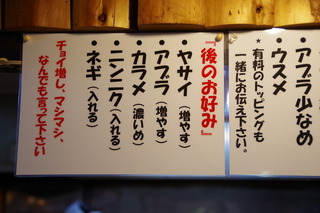 ・アブラ少なめ
・ウスメ
★有料のトッピングも
一緒にお伝え下さい。
『後のお好み』
・ヤサイ(増やす)
・アブラ(増やす)
・カラメ(濃いめ)
・ニンニク(入れる)
・ネギ(入れる)
チョイ増し、マシマシ、
なんでも言って下さい